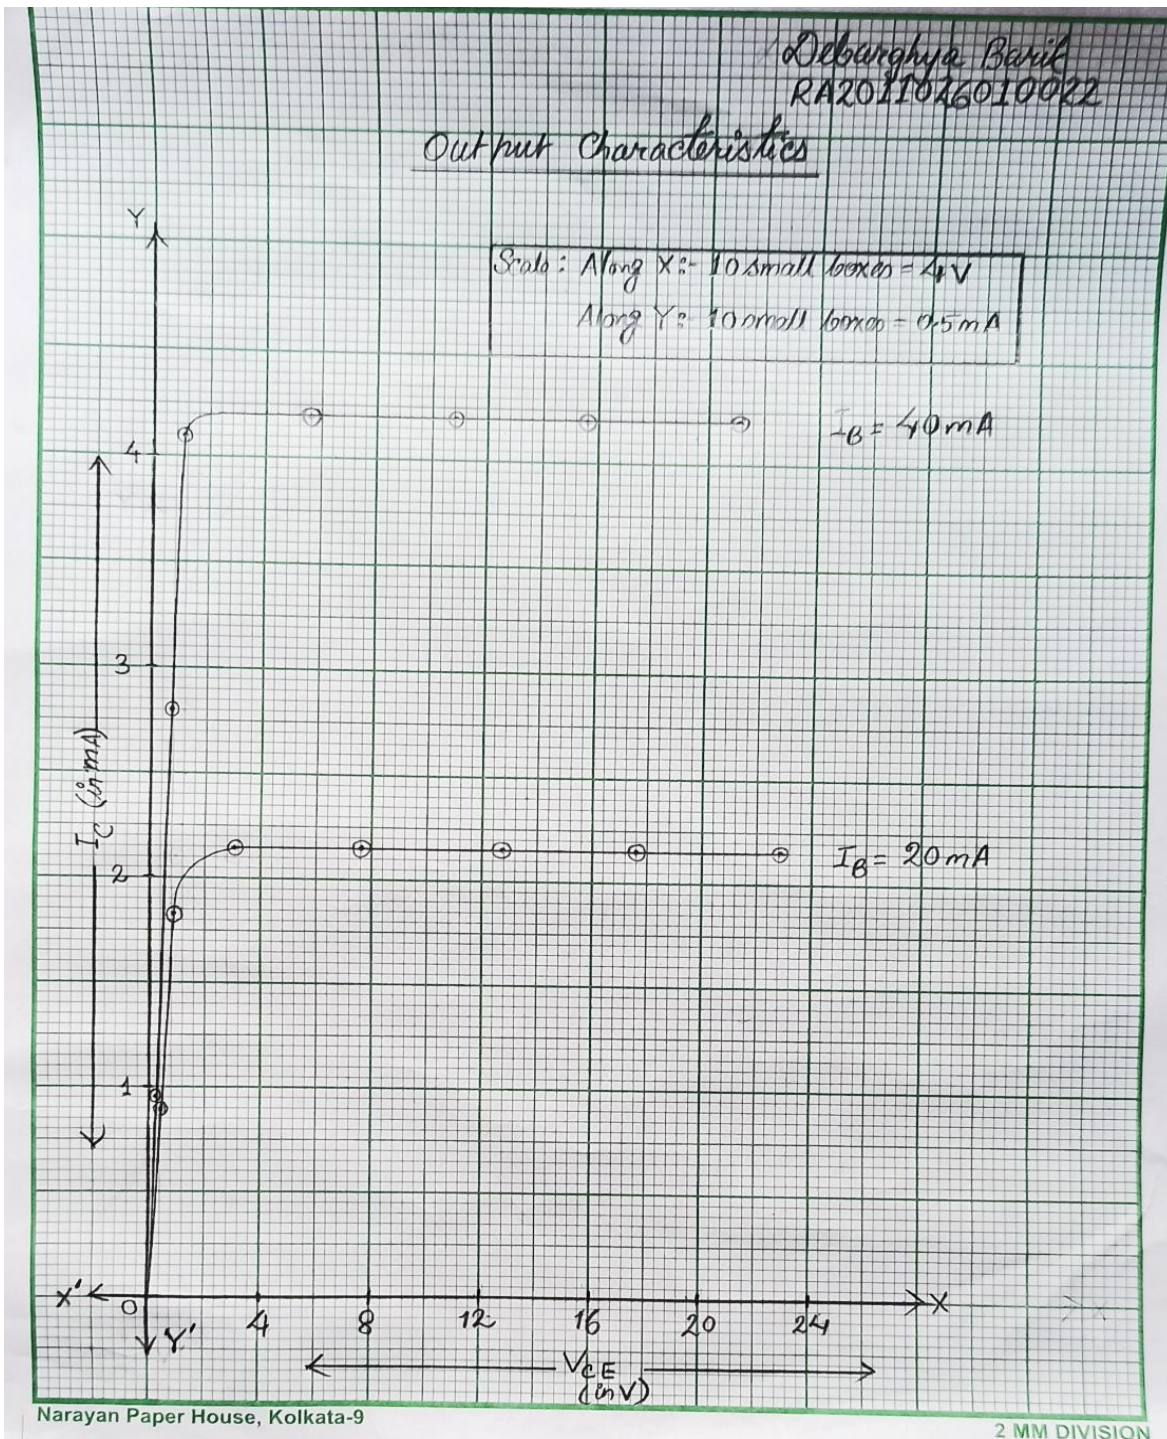 Debarghya Barik
RA2011026010022
Output Characteristics
Y
Scale: Along X:- 10 small boxes = 4V
Along Y:- 10 small boxes = 0.5mA
IB = 40mA
4
3
IC (in mA)
IB = 20mA
2
1
X' O X
Y' 4 8 12 16 20 24
VCE
(in V)
Narayan Paper House, Kolkata-9
2 MM DIVISION